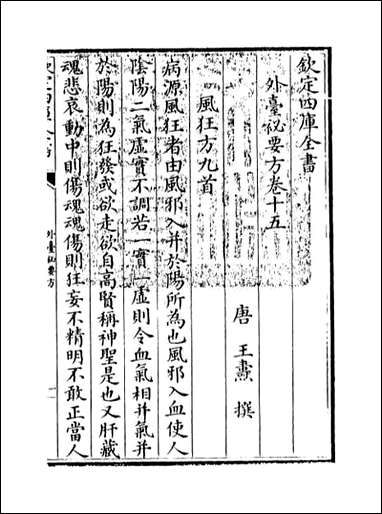 欽定四庫全書
外臺祕要方卷十五
唐 王燾 撰
風狂方九首
病源風狂者由風邪入并於陽所為也風邪入血使人
陰陽二氣虛實不調若一實一虛則令血氣相并氣并
於陽則為狂發或欲走或欲自高賢稱神聖是也又肝藏
魂悲哀動中則傷魂魂傷則狂妄不精明不敢正當人
欽定四庫全書
外臺祕要方